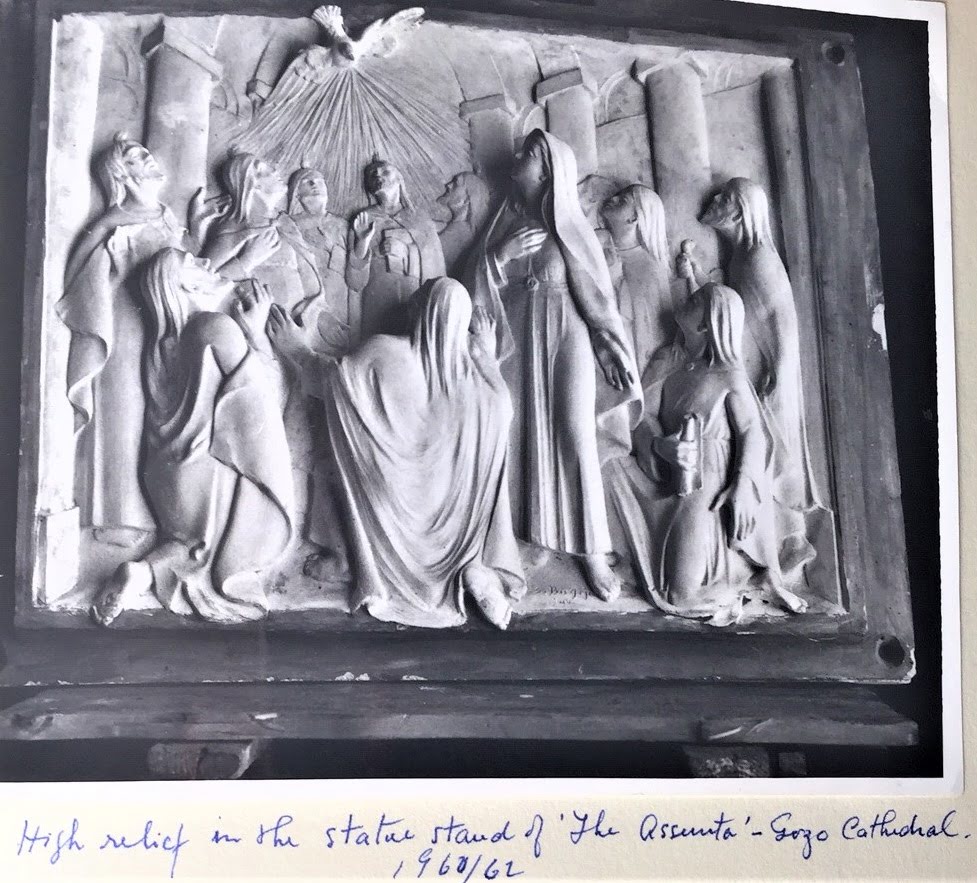 High relief in the statue stand of 'The Assunta' - Gozo Cathedral.
1960/62